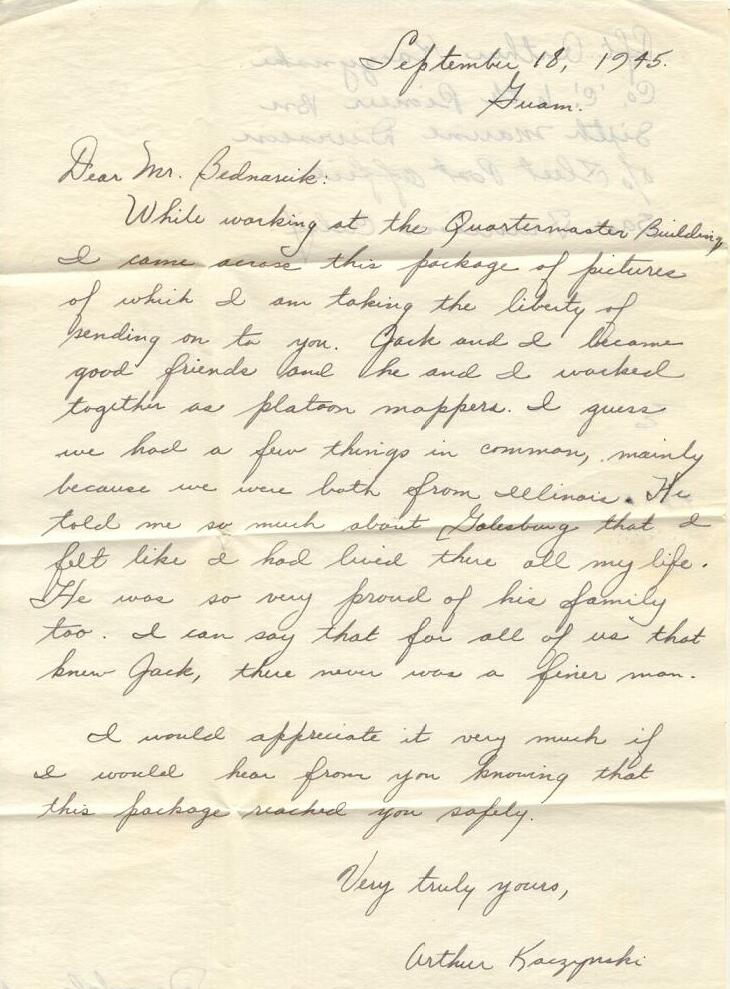 September 18, 1945.
Guam.
Dear Mr. Bednarcik:
While working at the Quartermaster Building,
I came across this package of pictures
of which I am taking the liberty of
sending on to you. Jack and I became
good friends and he and I worked
together as platoon mappers. I guess
we had a few things in common, mainly
because we were both from Illinois. He
told me so much about Galesburg that I
felt like I had lived there all my life.
He was so very proud of his family
too. I can say that for all of us that
knew Jack, there never was a finer man.
I would appreciate it very much if
I would hear from you knowing that
this package reached you safely.
Very truly yours,
Arthur Kaczynski